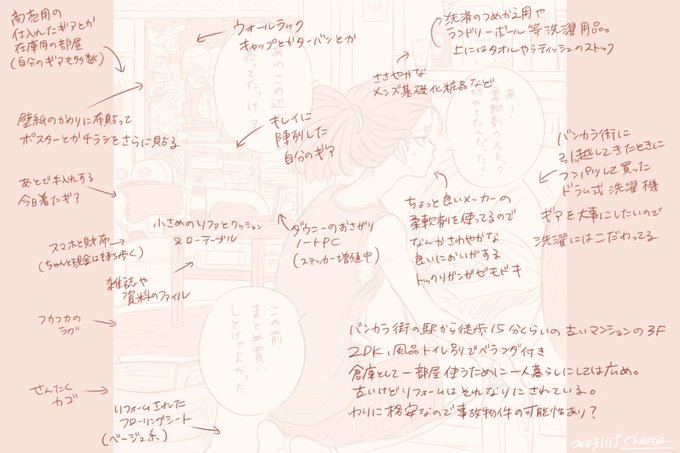 商売用の
仕入れたギアとか
在庫用の部屋
(自分のギアも多数)
ウォールラック
キャップとかターバンとか
洗済のつめかえ用や
ランドリーボール等洗濯用品。
上にはタオルやティッシュのストック
ささやかな
メンズ基礎化粧品など
壁紙のかわりに布貼って
ポスターとかチラシとさらに貼る
キレイに
陳列した
自分のギア
あ!
柔軟剤のストック
バンカラ街に
引越してきたときに
フンパツして買った
ドラム式洗濯機
ギアを大事にしたいので
洗濯にはこだわってる
あとで手入れする
今日着たギア
小さめのソファとクッション
&ローテーブル
ダウニーのおさがり
ノートPC
(ステッカー増殖中)
ちょっと良いメーカーの
柔軟剤を使ってるので
なんかさわやかな
良いにおいがする
トゥックリガンガゼモドキ
スマホと財布
(ちゃんと現金は持ち歩く)
雑誌や
資料のファイル
フカフカの
ラグ
この前
まとめ買い
しとけばよかった
バンカラ街の駅から徒歩15分くらいの古いマンションの3F
2DK、風呂トイレ別でベランダ付き
倉庫として一部屋使うために一人暮らしにしては広め。
古いけどリフォームはそれなりにされている。
わりに格安なので事故物件の可能性あり?
せんたく
カゴ
リフォームされた
フローリングシート
(ベージュ系)
20231115